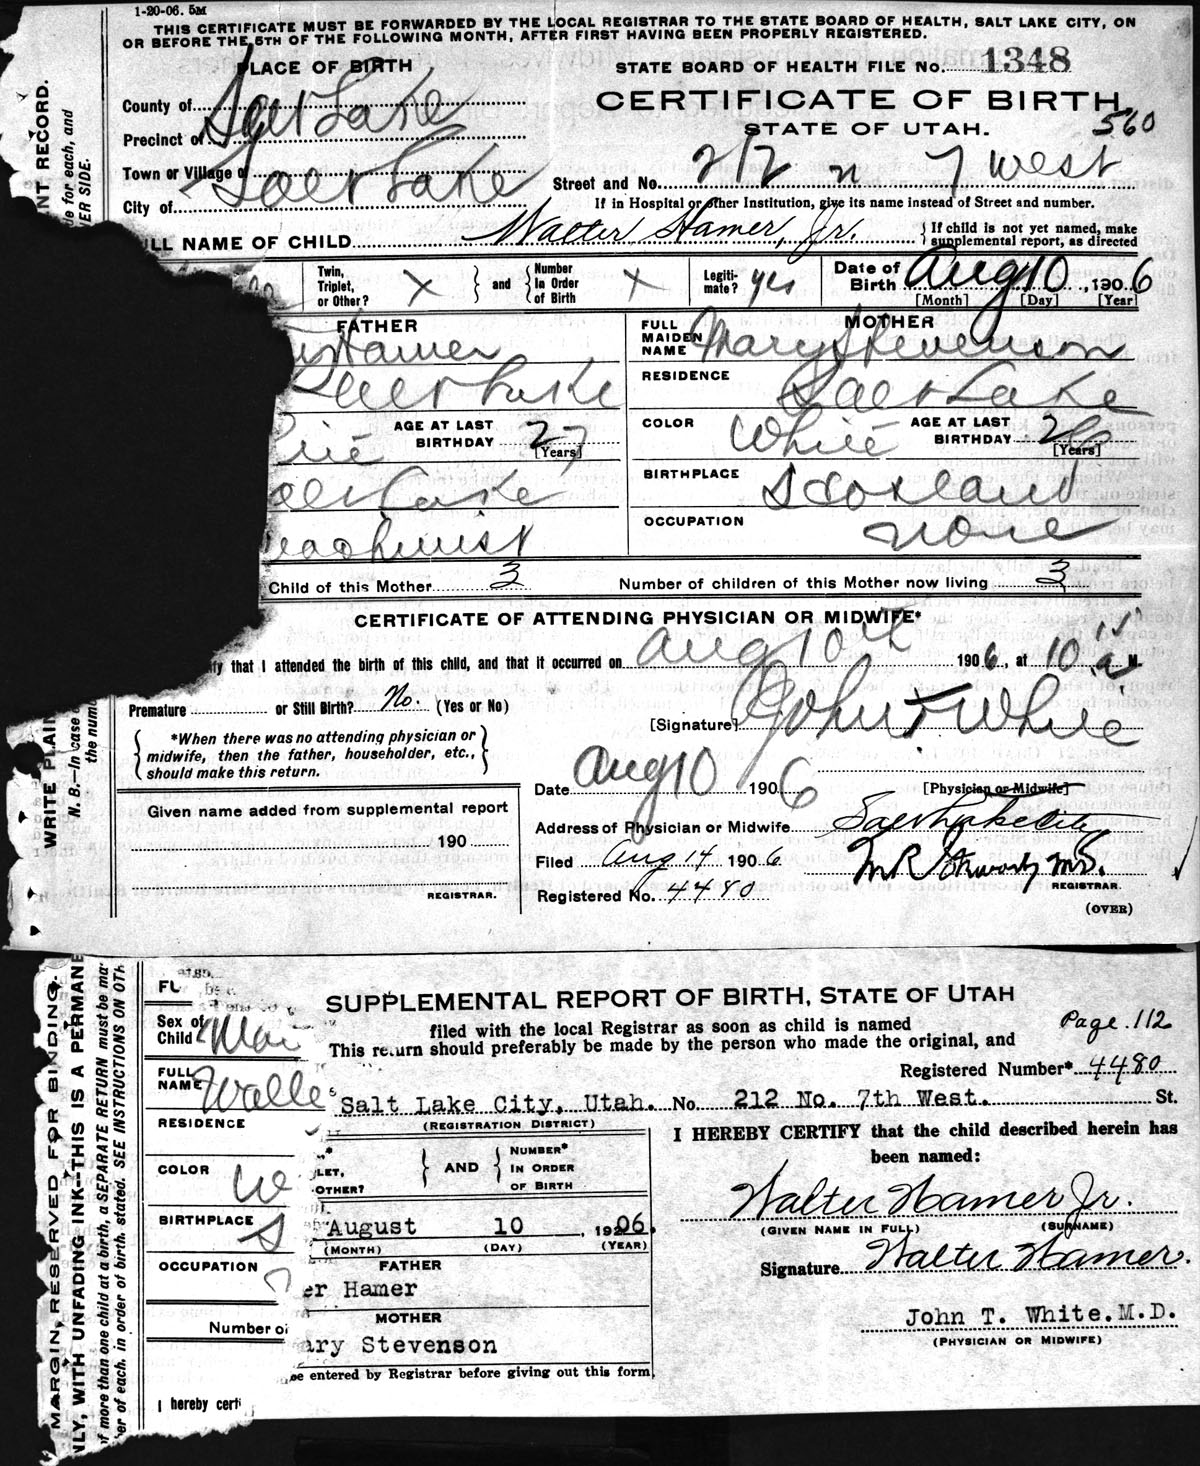 1-20-06. 5M
THIS CERTIFICATE MUST BE FORWARDED BY THE LOCAL REGISTRAR TO THE STATE BOARD OF HEALTH, SALT LAKE CITY, ON
OR BEFORE THE 5TH OF THE FOLLOWING MONTH, AFTER FIRST HAVING BEEN PROPERLY REGISTERED.
PLACE OF BIRTH
STATE BOARD OF HEALTH FILE No. 1348
County of Salt Lake
CERTIFICATE OF BIRTH
Precinct of
STATE OF UTAH. 560
Town or Village of
Street and No. 212 n 7 West
City of Salt Lake
If in Hospital or other Institution, give its name instead of Street and number.
FULL NAME OF CHILD Walter Hamer, Jr.
{ If child is not yet named, make
supplemental report, as directed
Twin, Triplet, or Other? X } and { Number In Order of Birth X
Legitimate? yes
Date of Birth Aug 10, 1906
[Month] [Day] [Year]
FATHER
MOTHER
Hamer
FULL MAIDEN NAME Mary Stevenson
Salt Lake
RESIDENCE Salt Lake
AGE AT LAST BIRTHDAY 27 [Years]
COLOR White AGE AT LAST BIRTHDAY 26 [Years]
alt Lake
BIRTHPLACE Scotland
achinist
OCCUPATION none
Child of this Mother 3 Number of children of this Mother now living 3
CERTIFICATE OF ATTENDING PHYSICIAN OR MIDWIFE*
ify that I attended the birth of this child, and that it occurred on Aug 10th 1906, at 10 15 a M.
Premature or Still Birth? No. (Yes or No)
[Signature] John T White
{ *When there was no attending physician or
midwife, then the father, householder, etc.,
should make this return. }
Date Aug 10 1906
[Physician or Midwife]
Given name added from supplemental report
190
REGISTRAR.
Address of Physician or Midwife Salt Lake City
Filed Aug 14 1906
M R Stewart M.D.
REGISTRAR.
Registered No. 4480
(OVER)
WRITE PLAIN
NT RECORD.
N. B.—In case
the num
de for each, and
ER SIDE.
SUPPLEMENTAL REPORT OF BIRTH, STATE OF UTAH
filed with the local Registrar as soon as child is named
This return should preferably be made by the person who made the original, and
Page. 112
Registered Number* 4480
Salt Lake City, Utah. No. 212 No. 7th West. St.
(REGISTRATION DISTRICT)
I HEREBY CERTIFY that the child described herein has
been named:
LET, OTHER? } AND { NUMBER* IN ORDER OF BIRTH
Walter Hamer Jr.
(GIVEN NAME IN FULL) (SURNAME)
August 10, 1906.
(MONTH) (DAY) (YEAR)
Signature Walter Hamer.
FATHER
er Hamer
MOTHER
ary Stevenson
John T. White.M.D.
(PHYSICIAN OR MIDWIFE)
be entered by Registrar before giving out this form,
FU
Sex of Child
FULL NAME
RESIDENCE
COLOR W
BIRTHPLACE S
OCCUPATION
Number of
I hereby certi
MARGIN, RESERVED FOR BINDING.
NLY, WITH UNFADING INK--THIS IS A PERMANE
of more than one child at a birth, a SEPARATE RETURN must be ma
ber of each, in order of birth, stated. SEE INSTRUCTIONS ON OTH